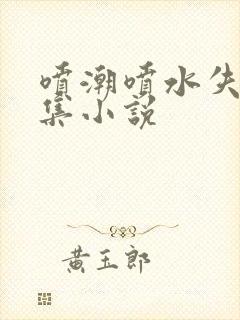 噴潮噴水失
集小說
黃玉郎